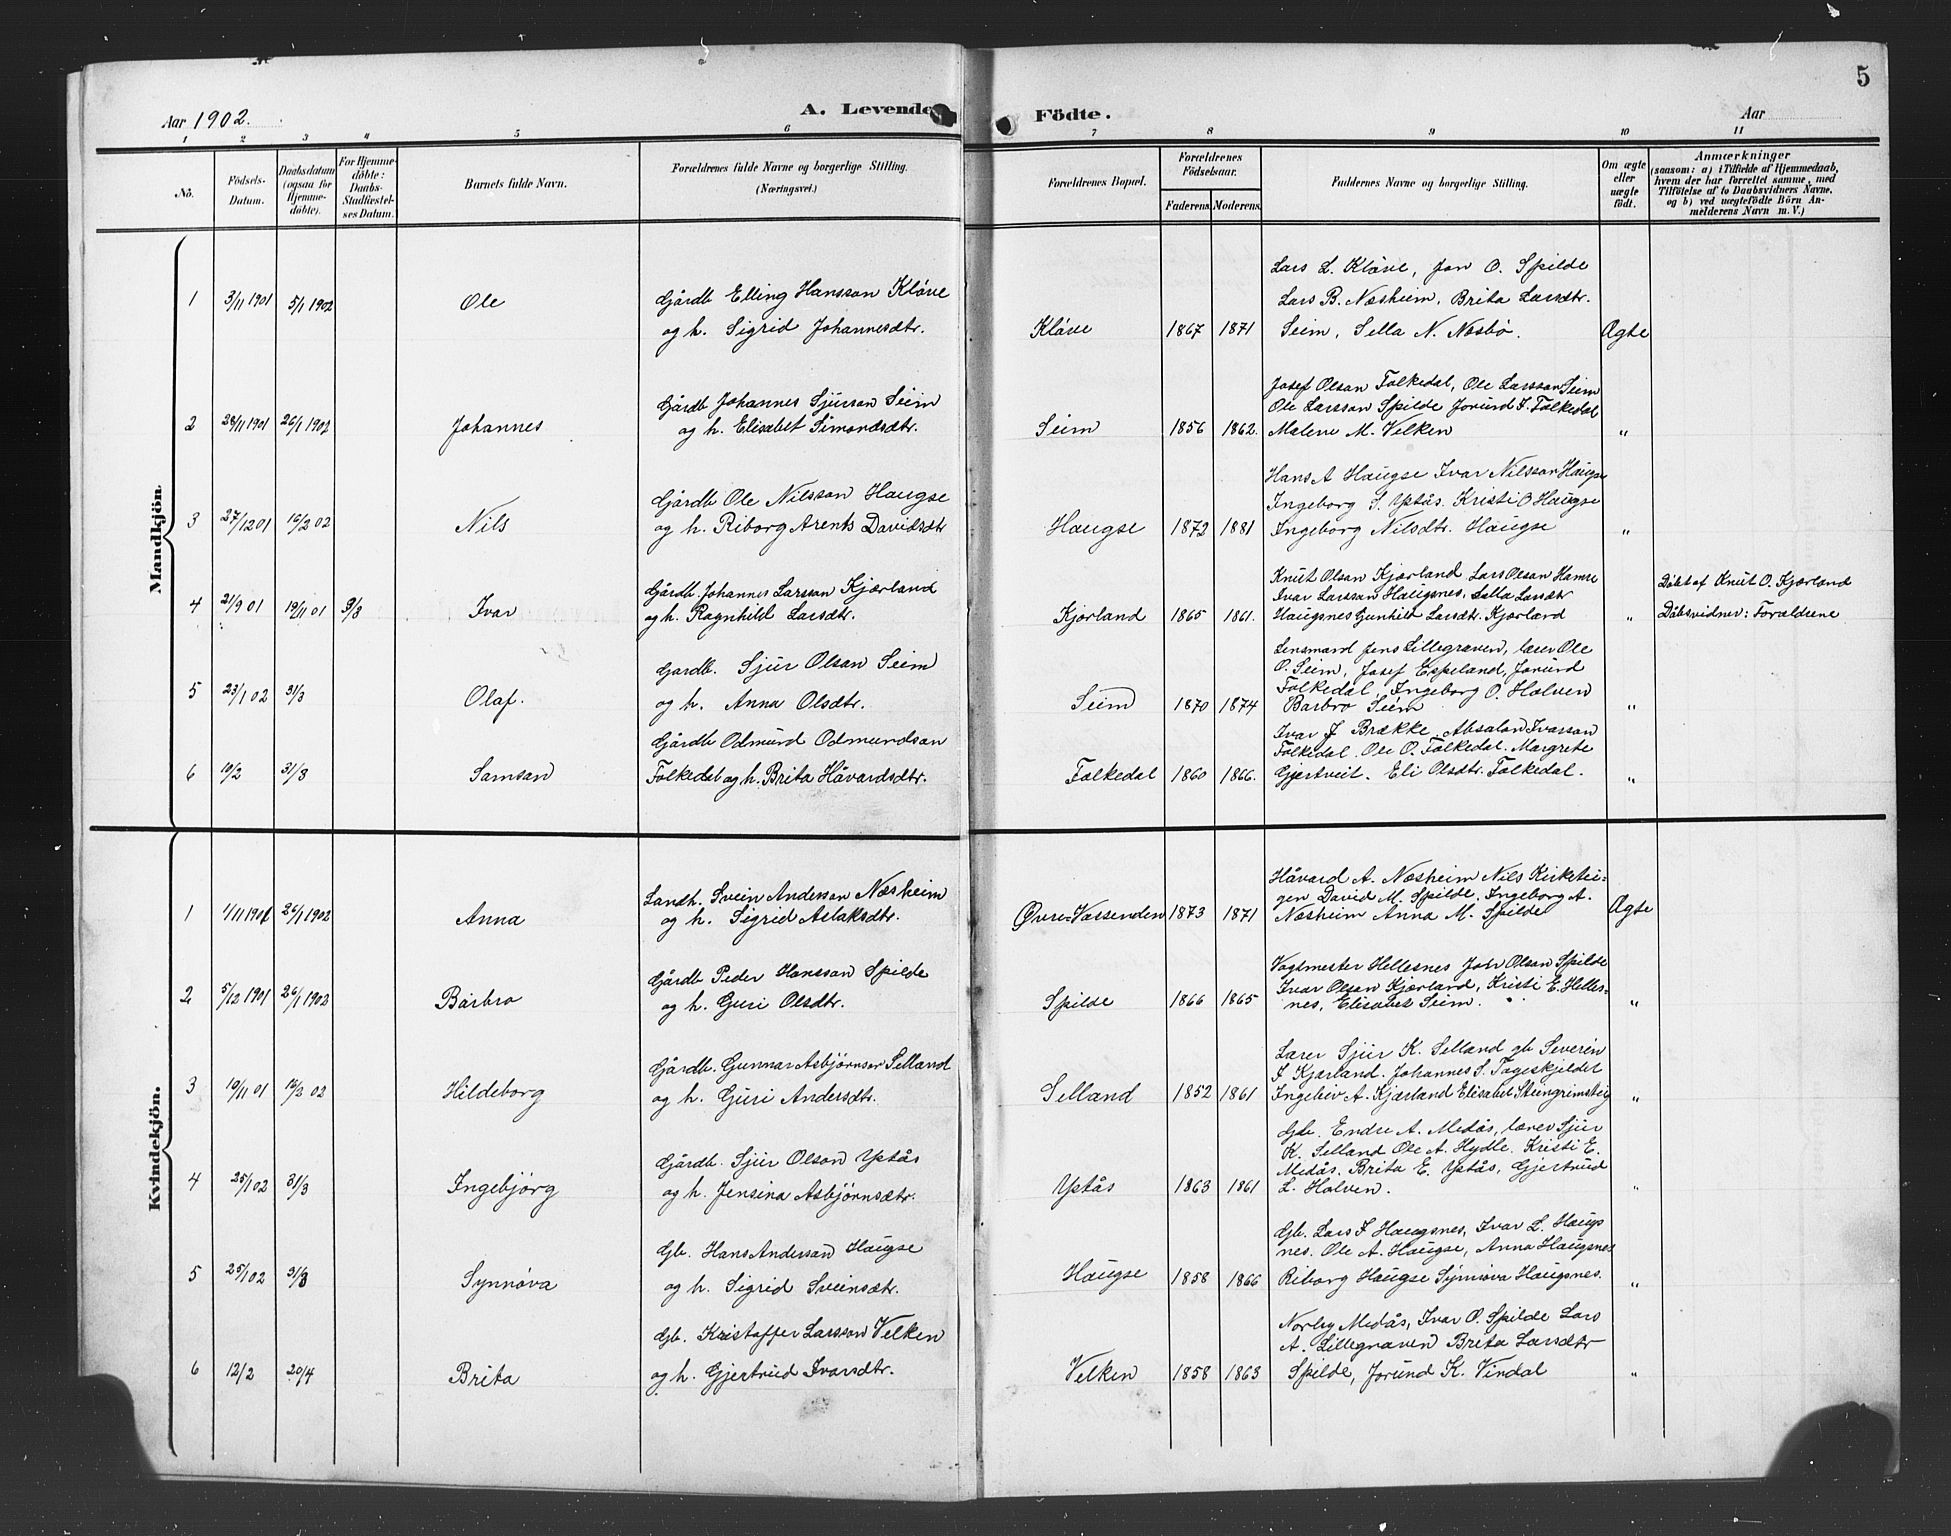 5
Aar 1902.
A. Levende
Födte.
Aar
1 2 3 4 5 6 7 8 9 10 11
No.
Födsels-
Datum.
Daabsdatum
(ogsaa for
Hjemme-
döbte).
For Hjemme-
døbte:
Daabs-
Stadfæstel-
ses Datum.
Barnets fulde Navn.
Forældrenes fulde Navne og borgerlige Stilling.
(Næringsvei.)
Forældrenes Bopæl.
Forældrenes
Födselsaar.
Faderens. Moderens.
Faddernes Navne og borgerlige Stilling.
Om ægte
eller
uægte
födt.
Anmærkninger
(saasom: a) i Tilfælde af Hjemmedaab,
hvem der har forrettet samme, med
Tilföielse af to Daabsvidners Navne,
og b) ved uægtefödte Börn An-
melderens Navn m. V.)
Mandkjön.
1 3/11 1901 5/1 1902 Ole
Gårdb Elling Hansson Kløve
og h. Sigrid Johannesdtr.
Kløve 1867 1871
Lars L. Kløve, Jon O. Spilde
Lars B. Næsheim, Brita Larsdtr.
Seim, Sella N. Næsbø.
Ægte
2 28/11 1901 26/1 1902 Johannes
Gårdb Johannes Sjursson Seim
og h. Elisabet Simonsdtr.
Seim 1856 1862.
Josef Olson Folkedal, Ole Larsson Seim
Ole Larsson Spilde Jorund J. Folkedal
Malene M. Velken
"
3 27/12 01 16/2 02 Nils
Gårdb Ole Nilsson Haugse
og h. Riborg Arents Davidsdtr
Haugse 1872 1881
Hans A Haugse Ivar Nilsson Haugse
Ingeborg S. Ystås. Kristi O Haugse
Ingeborg Nilsdtr. Haugse
"
4 21/9 01 19/11 01 9/3 Ivar
Gårdb. Johannes Larsson Kjærland
og h. Ragnhild Larsdtr.
Kjærland 1865 1861.
Knut Olson Kjærland Lars Olson Hamre
Ivar Larsson Haugsnes, Sella Larsdtr
Haugsnes Gunhild Larsdtr. Kjærland
"
Døbt af Knut O. Kjærland
Dåbsvidner: Forældrene
5 23/1 02 31/3 Olaf.
Gårdb. Sjur Olson Seim
og h. Anna Olsdtr.
Seim 1870 1874
Lensmand Jens Lillegraven, lærer Ole
O. Seim, Josef Espeland, Jorund
Folkedal, Ingeborg O. Halven
Barbro Seim
"
6 10/2 31/3 Samson
Gårdb Odmund Odmundson
Folkedal og h. Brita Håvardsdtr.
Folkedal 1860 1866.
Ivar J Brække. Absalon Ivarson
Folkedal. Ole O. Folkedal. Margrete
Gjertveit. Eli Olsdtr. Folkedal.
"
Kvindekjön.
1 1/11 1901 26/1 1902 Anna
Landh. Svein Anderson Næsheim
og h. Sigrid Aslaksdtr.
Øvre-Vassenden 1873 1871
Håvard A. Næsheim Nils Kirketei-
gen David M. Spilde, Ingeborg A.
Næsheim Anna M. Spilde
Ægte
2 5/12 1901 26/1 1902 Barbro
Gårdb Peder Hansson Spilde
og h. Guri Olsdtr.
Spilde 1866 1865
Vagtmester Hellesnes Joh Olson Spilde
Ivar Olson Kjærland, Kristi E. Helles-
nes, Elisabet Seim.
"
3 19/11 01 16/2 02 Hildeborg
Gårdb. Gunnar Asbjørnson Selland
og h. Guri Andersdtr.
Selland 1852 1861
Lærer Sjur K. Selland gb Severin
J Kjærland. Johannes S. Tageskjeldet
Ingebjv A. Kjærland Elisabet Steingrimsteig
"
4 25/1 02 31/3 Ingebjørg
Gårdb. Sjur Olson Ystås
og h. Jensina Asbjørnsdtr.
Ystås 1863 1861
Gb. Endre A. Medås, lærer Sjur
K. Selland Ole A. Hydle. Kristi E.
Medås. Brita E. Ystås, Gjertrud
L. Halven.
"
5 25/1 02 31/3 Synnøva
Gb. Hans Anderson Haugse
og h. Sigrid Sveinsdtr.
Haugse 1858 1866
Gb. Lars J Haugsnes, Ivar L. Haugs
nes. Ole A. Haugse, Anna Haugsnes
Riborg Haugse Synnøva Haugsnes.
"
6 12/2 20/4 Brita
Gb. Kristoffer Larsson Velken
og h. Gjertrud Ivarsdtr.
Velken 1858 1863
Norby Medås, Ivar O. Spilde Lars
A. Lillegraven Brita Larsdtr
Spilde, Jorund K. Vindal
"